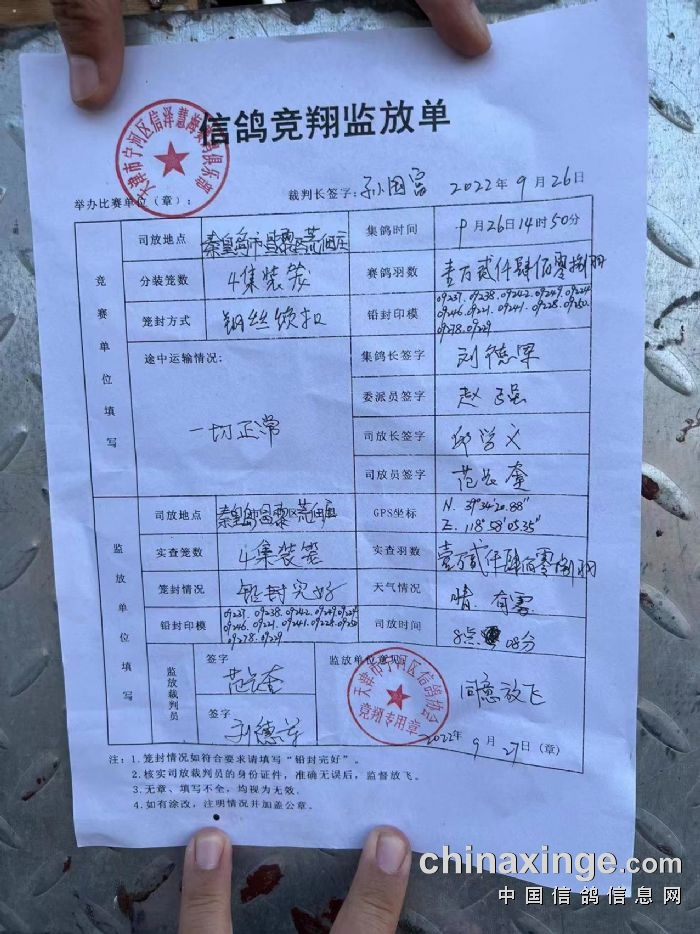 信鸽竞翔监放单
天津市宁河区信泽慧海赛鸽俱乐部
举办比赛单位（章）： 裁判长签字：孙国富 2022年9月26日
竞赛单位填写
司放地点 秦皇岛市昌黎区荒佃庄 集鸽时间 9月26日14时50分
分装笼数 4集装笼 赛鸽羽数 壹万贰仟肆佰零捌羽
笼封方式 钢丝锁扣 铅封印模 09237.09238.09242.09249.09224
09246.09221.09241.09228.09250.
09278.09229
途中运输情况： 集鸽长签字
一切正常 委派员签字 赵
司放长签字 邱学义
司放员签字 范长奎
监放单位填写
司放地点 秦皇岛昌黎区荒佃庄 GPS坐标 N. 39°34′20.88″
E. 118°58′05.35″
实查笼数 4集装笼 实查羽数 壹万贰仟肆佰零捌羽
笼封情况 铅封完好 天气情况 晴.有雾
铅封印模 09237.09238.09242.09249.09224
09246.09221.09241.09228.09250
09278.09229
司放时间 8点08分
监放裁判员
签字 范长奎
签字
监放单位意见：
同意放飞
天津市宁河区信鸽协会
竞翔专用章
2022年9月27日（章）
注：1.笼封情况如符合要求请填写“铅封完好”。
2.核实司放裁判员的身份证件，准确无误后，监督放飞。
3.无章、填写不全，均视为无效。
4.如有涂改，注明情况并加盖公章。
chinaxinge.com
中国信鸽信息网